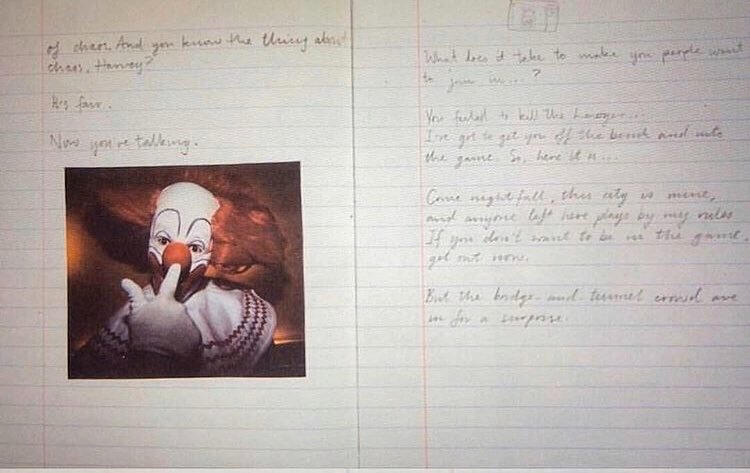 of chaos. And you know the thing about
chaos, Harvey?
It's fair.
Now you're talking.
What does it take to make you people want
to join in...?
You failed to kill the lawyer...
I've got to get you off the bench and into
the game. So, here it is...
Come nightfall, this city is mine,
and anyone left here plays by my rules
If you don't want to be in the game,
get out now.
But the bridge and tunnel crowd are
in for a surprise.